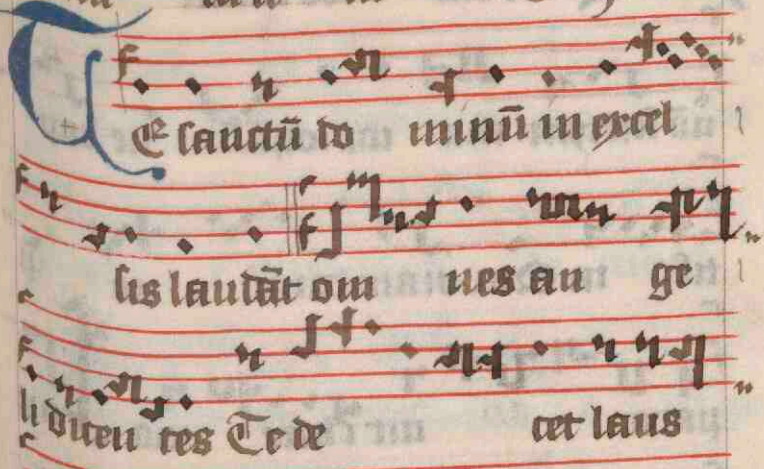 TE sanctū do minū in excel
sis laudāt om nes an ge
li dicen tes Te de cet laus